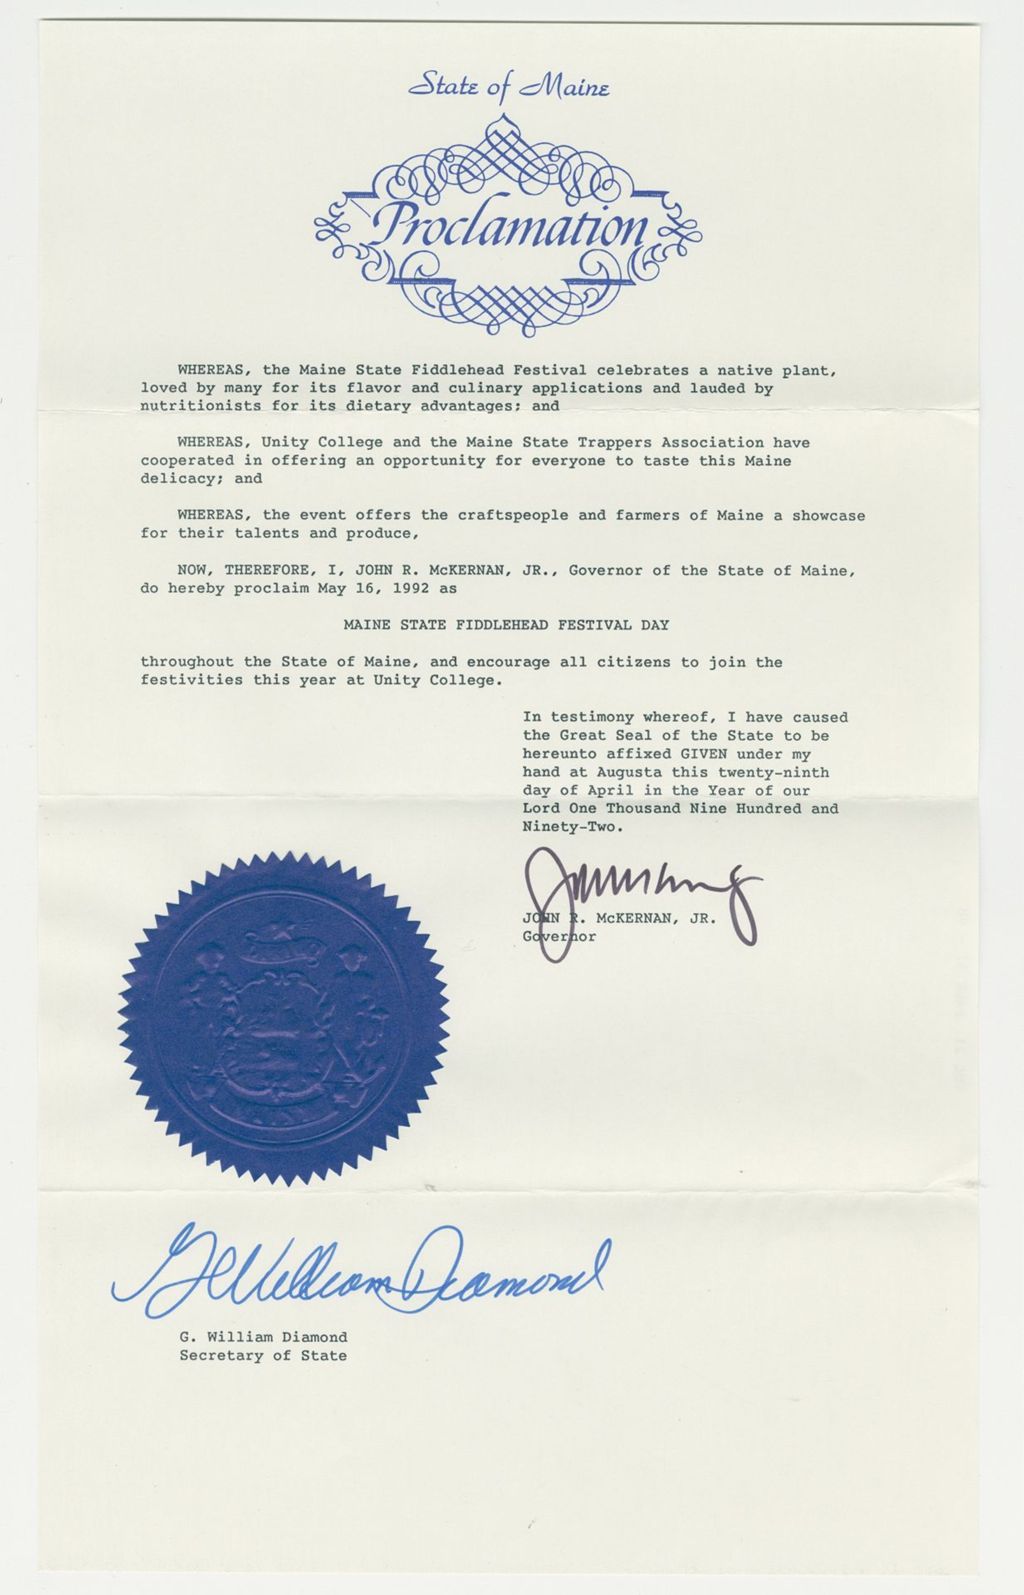 State of Maine
Proclamation
WHEREAS, the Maine State Fiddlehead Festival celebrates a native plant,
loved by many for its flavor and culinary applications and lauded by
nutritionists for its dietary advantages; and
WHEREAS, Unity College and the Maine State Trappers Association have
cooperated in offering an opportunity for everyone to taste this Maine
delicacy; and
WHEREAS, the event offers the craftspeople and farmers of Maine a showcase
for their talents and produce,
NOW, THEREFORE, I, JOHN R. McKERNAN, JR., Governor of the State of Maine,
do hereby proclaim May 16, 1992 as
MAINE STATE FIDDLEHEAD FESTIVAL DAY
throughout the State of Maine, and encourage all citizens to join the
festivities this year at Unity College.
In testimony whereof, I have caused
the Great Seal of the State to be
hereunto affixed GIVEN under my
hand at Augusta this twenty-ninth
day of April in the Year of our
Lord One Thousand Nine Hundred and
Ninety-Two.
JOHN R. McKERNAN, JR.
Governor
G William Diamond
G. William Diamond
Secretary of State